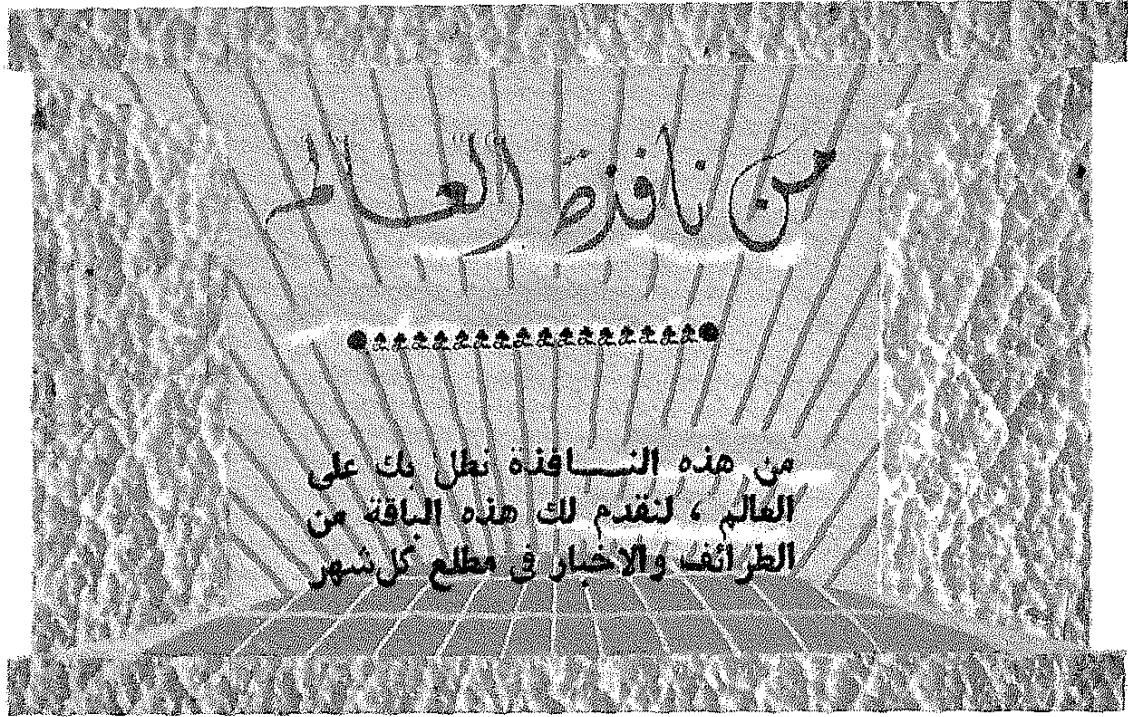 من نافذة العالم
من هذه النافذة نطل بك على
العالم ، لنقدم لك هذه الباقة من
الطرائف والاخبار في مطلع كل شهر